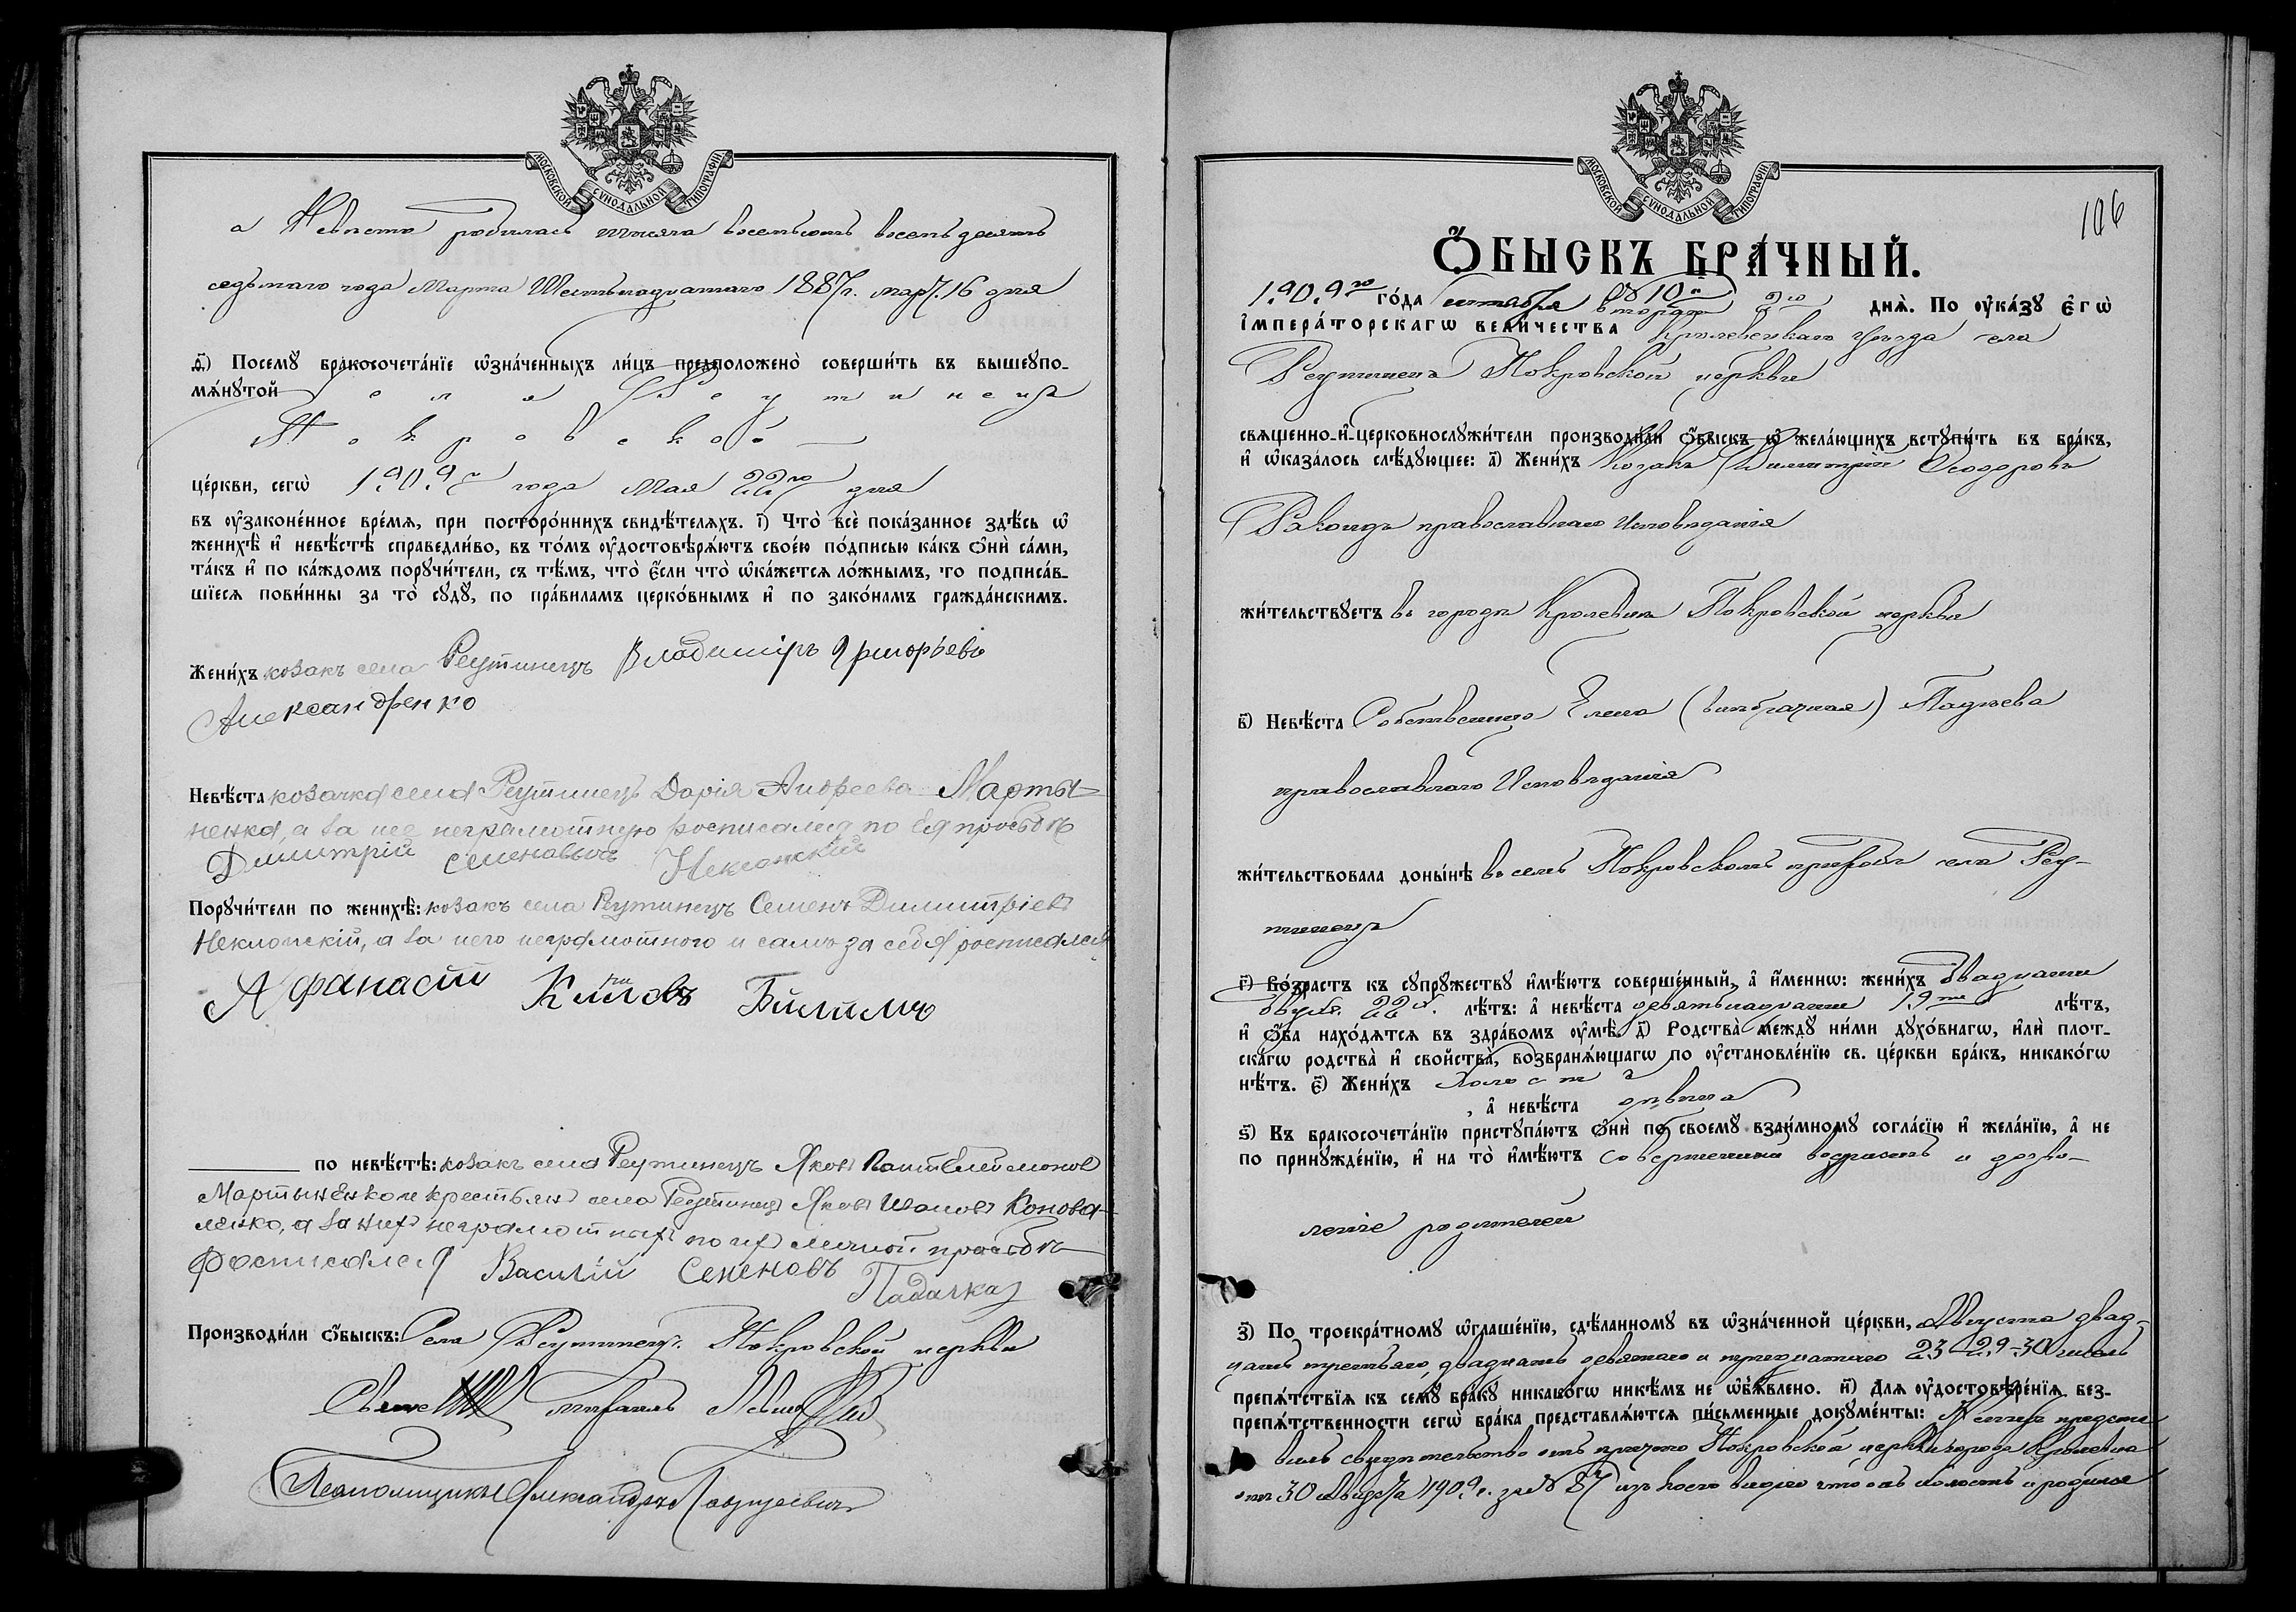 МОСКОВСКОЙ СѴНОДАЛЬНОЙ ТИПОГРАФІИ
а Невѣста родилась тысяча восемьсотъ восемьдесятъ
седьмаго года Марта Шестьнадцатаго 1887 г. мар. 16 дня
д҃) Посемꙋ бракосочета́нїе ѡ҆зна́ченныхъ ли́цъ предположено̀ соверши́ть въ вышеупо-
мѧ́нꙋтой села Реутинецъ
Покровской
це́ркви, сегѡ̀ 1909 г. года Мая 22го дня
въ ᲂу҆законе́нное вре́мѧ, при посторо́ннихъ свидѣ́телѧхъ. і҃) Что̀ всѐ пока́занное здѣ́сь ѡ҆
женихѣ̀ и҆ невѣ́стѣ справедли́во, въ то́мъ ᲂу҆достовѣрѧ́ютъ свое́ю по́дписью ка́къ ѻ҆нѝ са́ми,
та́къ и҆ по ка́ждомъ порꙋчи́тели, съ тѣ́мъ, что̀ є҆́сли что̀ ѡ҆ка́жетсѧ ло́жнымъ, то подписа́в-
шїесѧ пови́нны за то̀ сꙋдꙋ̀, по пра́виламъ церко́внымъ и҆ по зако́намъ гражда́нскимъ.
Жени́хъ козакъ села Реутинецъ Владимiръ Григорьевъ
Александренко
Невѣ́ста козачка села Реутинецъ Дарія Андреева Марты-
ненкова, а за нее неграмотную росписался по Ея просьбѣ
Димитрій Семеновичъ Неклонскій
Порꙋчи́тели по женихѣ̀: козакъ села Реутинецъ Семенъ Димитріевъ
Неклонскій, а за него неграмотного и самъ за себя росписался
Афанасій
по невѣ́стѣ: козакъ села Реутинецъ Яковъ Пантелеймоновъ
Мартыненко и крестьян села Реутинецъ Яковъ Ивановъ Конова-
ленко, а за них неграмотных по их личной просьбѣ
росписался Василій Семеновъ Падалка
Производи́ли ѻ҆́быскъ: Села Реутинецъ Покровской церкви
Свящ Михаилъ
Псаломщикъ Александръ
МОСКОВСКОЙ СѴНОДАЛЬНОЙ ТИПОГРАФІИ
106
Ѻ҆́БЫСКЪ БРА́ЧНЫЙ.
1909го го́да сентября № 10й 2го днѧ̀. По ᲂу҆ка́зꙋ Є҆гѡ̀
І҆мпера́торскагѡ вели́чества Кролевецкаго уѣзда села
Реутинецъ Покровской церкви
свѧщенно-и҆-церковнослꙋжи́тели производи́ли ѻ҆́быскъ ѡ҆ жела́ющихъ вступи́ть въ бра́къ,
и҆ ѡ҆каза́лось слѣ́дꙋющее: а҃) Жени́хъ Козакъ Димитрій Ѳеодоровъ
Ракоидъ православнаго Исповѣданія
жи́тельствꙋетъ въ городѣ Кролевцѣ Покровской церкви
в҃) Невѣ́ста Собственица Елена (внѣбрачная) Падчева
православнаго Исповѣданія
жи́тельствовала доны́нѣ въ семъ Покровскомъ приходѣ села Реу-
тинецъ
г҃) Во́зрастъ къ сꙋпрꙋжествꙋ и҆мѣ́ютъ соверше́нный, а҆ и҆́меннѡ: жени́хъ двадцати
двухъ 22х лѣ́тъ: а҆ невѣ́ста девятьнадцати 19ти лѣ́тъ,
и҆ ѻ҆́ба нахо́дѧтсѧ въ здра́вомъ ᲂу҆мѣ̀. д҃) Родства̀ междꙋ̀ ни́ми дꙋхо́внагѡ, и҆лѝ плот-
ска́гѡ родства̀ и҆ свойства̀, возбранѧ́ющагѡ по ᲂу҆становле́нїю св. це́ркви бра́къ, никако́гѡ
нѣ́тъ. є҃) Жени́хъ холостъ
, а҆ невѣ́ста дѣвица
ѕ҃) Въ бракосочета́нїю пристꙋпа́ютъ ѻ҆нѝ по своемꙋ̀ взаи́мномꙋ согла́сїю и҆ жела́нїю, а҆ не
по принꙋжде́нїю, и҆ на то̀ и҆мѣ́ютъ совершенный возрастъ и дозво-
леніе родителей
з҃) По троекра́тномꙋ ѡ҆глаше́нїю, сдѣ́ланномꙋ въ ѡ҆зна́ченной це́ркви, Августа двад-
цать третьяго, двадцать девятаго и тридцатаго 23-29-30 чиселъ
препѧ́тствїѧ къ семꙋ̀ бра́кꙋ никако́гѡ никѣ́мъ не ѡ҆б̾ѧ́влено. и҃) Длѧ ᲂу҆достовѣре́нїѧ без-
препѧ́тственности сегѡ̀ бра́ка представлѧ́ютсѧ пи́сьменные докꙋме́нты: Женихъ предста-
вилъ свидѣтельство отъ причта Покровской церкви города Кролевца
отъ 30 Августа 1909 г. за № 87 изъ коего видно что онъ холостъ и родился